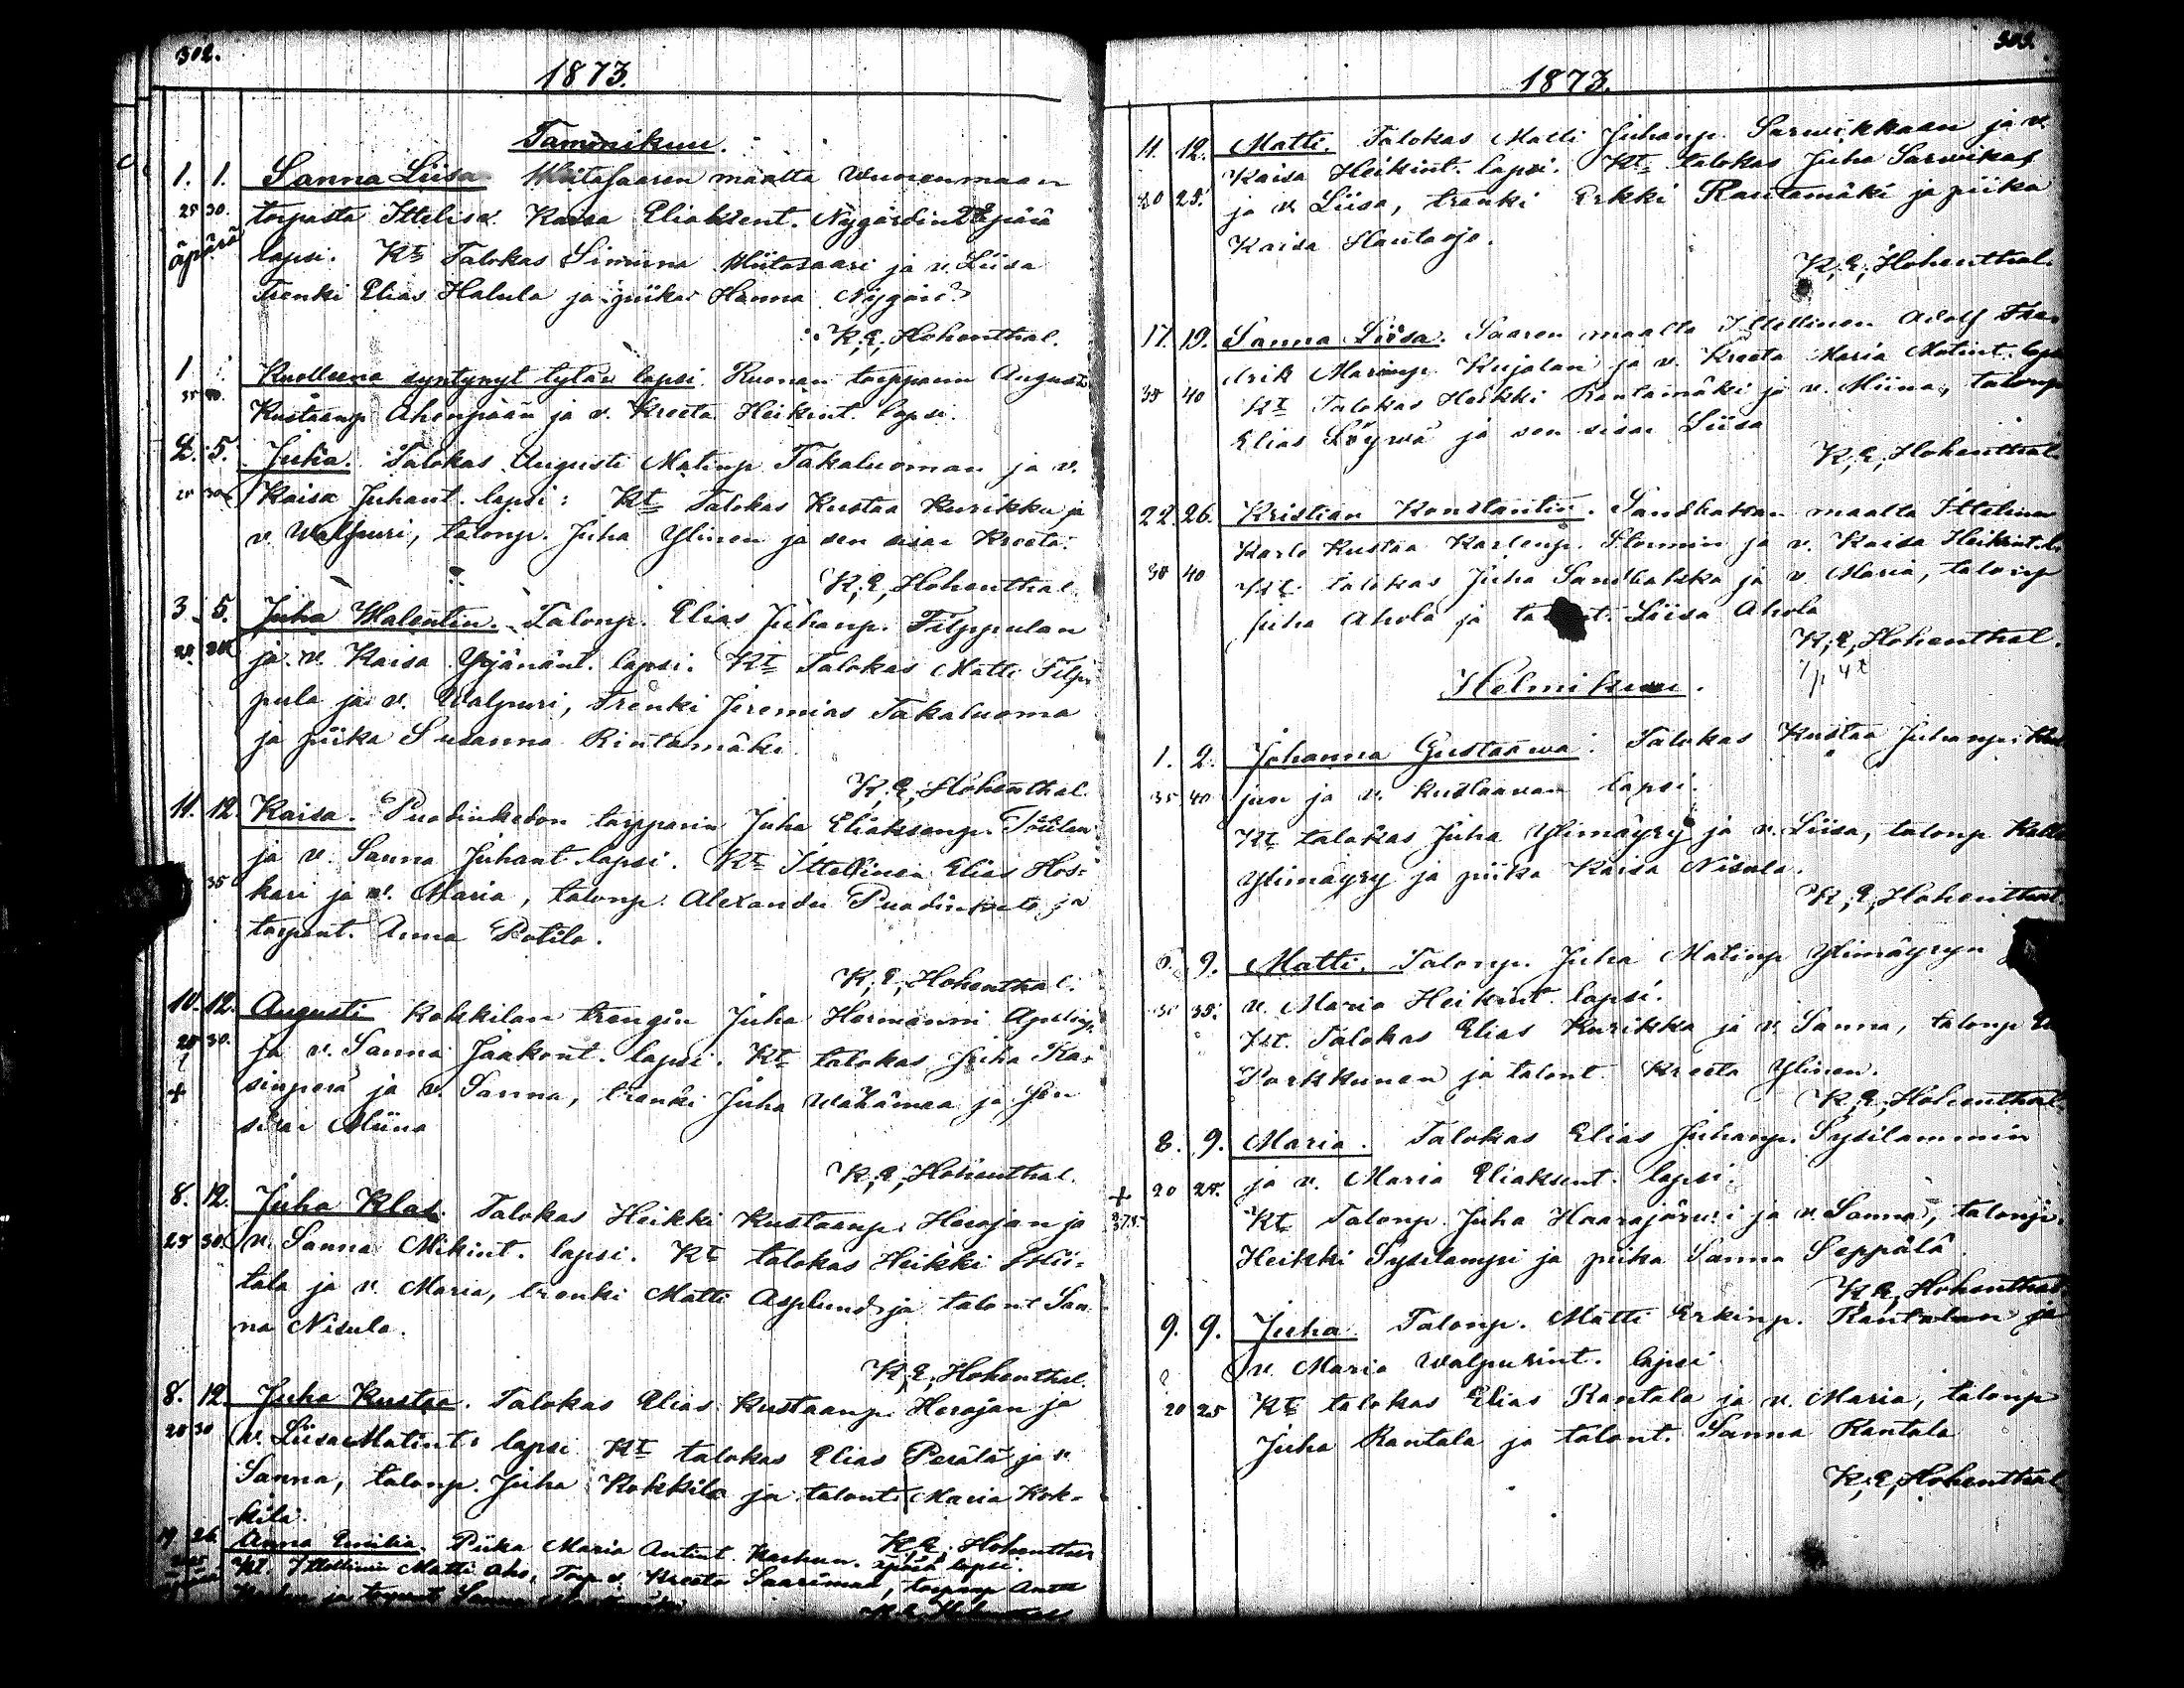 302.
1873.
Tammikuu.
1. 1. Sanna Liisa Miitasaaren maalta Wuorenmaan
25 30. torpasta Ittelis v. Kaisa Eliaksent. Nygårdin äpärä
äpärä lapsi. Kt Talokas Simuna Miitasaari ja v. Liisa
Trenki Elias Halula ja piika Hanna Nygård
K. E. Hohenthal.
1 Kuolleena syntynyt tytär lapsi Ruonan torpparin Augusti
35 40. Kustaanp. Ahonpään ja v. Kreeta Heikint. lapsi.
2. 5. Juha. Talokas Augusti Matinp. Takaluoman ja v.
Kaisa Juhant. lapsi: Kt Talokas Kustaa Kurikka ja
v. Walpuri, talonp. Juha Ylinen ja sen sisar Kreeta.
K. E. Hohenthal.
3. 5. Juha Walentin. Talonp. Elias Juhanp. Filppulan
ja v. Kaisa Yrjänänt. lapsi. Kt Talokas Matti Filp-
pula ja v. Walpuri, trenki Jeremias Takaluoma
ja piika Susanna Rintamäki.
K. E. Hohenthal.
11. 12. Kaisa. Puodinkedon torpparin Juha Eliaksenp.
ja v. Sanna Juhant. lapsi. Kt Ittellinen Elias Hos-
35 kari ja v. Maria, talonp. Alexander Puodinketo ja
torpant. Anna Potila.
K. E. Hohenthal.
10. 12. Augusti Kokkilan trengin Juha Hermanni
25 30. ja v. Sanna Jaakont. lapsi. Kt talokas Juha Ka-
+ sinperä ja v. Sanna, trenki Juha Wähämaa ja sen
sisar Miina
K. E. Hohenthal.
8. 12. Juha Klas. Talokas Heikki Kustaanp. Herajan ja
25 30. v. Sanna Mikint. lapsi. Kt talokas Heikki
tala ja v. Maria, trenki Matti Asplund ja talont San
na Nisula.
K. E. Hohenthal.
8. 12. Juha Kustaa. Talokas Elias Kustaanp. Herajan ja
20 30 v. Liisa Matint. lapsi Kt talokas Elias Perälä ja v.
Sanna, talonp. Juha Kokkila ja talont. Maria Kok-
kila.
K. E. Hohenthal
19 26 Anna Emilia. Piika Maria Antint. äpärä lapsi.
Kt. Ittellinen Matti Aho, Torp. v. Kreeta Saarimaa, torpanp. Antti
ja torpant. Sanna
303.
1873.
11. 12. Matti. Talokas Matti Juhanp. Sarwikkaan ja v.
Kaisa Heikint. lapsi. Kt talokas Juha Sarwikas
20 25. ja v. Liisa, trenki Erkki Rautamäki ja piika
Kaisa Hautaoja.
K. E. Hohenthal.
17. 19. Sanna Liisa. Saaren maalta Ittellinen Adolf Fre
drik Kujalan ja v. Kreeta Maria Matint. lapsi
35 40 Kt Talokas Heikki Rautamäki ja v. Miina, talonp
Elias Löywä ja sen sisar Liisa
K. E. Hohenthal
22. 26. Kristian Konstantin. Sandhakan maalta Ittelinen
Karlo Kustaa Karlenp. Stormin ja v. Kaisa Heikint. l.
30 40 Kt. talokas Juha Sandhakka ja v. Maria, talonp
Juha Ahola ja talont. Liisa Ahola
K. E. Hohenthal.
Helmikuu.
1. 2. Johanna Gustaawa. Talokas Kustaa Juhanp.
35 40 jun ja v. Kustaawan lapsi.
Kt talokas Juha Ylimäyry ja v. Liisa, talonp. Kalle
Ylimäyry ja piika Kaisa Nisula.
K. E. Hohenthal
9. Matti. Talonp. Juha Matinp Ylimäyryn
35. v. Maria Heikint lapsi.
Kt. Talokas Elias Kurikka ja v. Sanna, talonp
Porkkunen ja talont. Kreeta Ylinen.
K. E. Hohenthal
8. 9. Maria. Talokas Elias Juhanp. Sysilammin
+ 20 25. ja v. Maria Eliaksent. lapsi.
Kt Talonp. Juha Haarajärwi ja v. Sanna, talonp.
Heikki Sysilampi ja piika Sanna Seppälä
K. E. Hohenthal
9. 9. Juha. Talonp. Matti Erkinp. Rantalan ja
v. Maria Walpurint. lapsi
20 25 Kt talokas Elias Rantala ja v. Maria, talonp
Juha Rantala ja talont. Sanna Rantala
K. E. Hohenthal